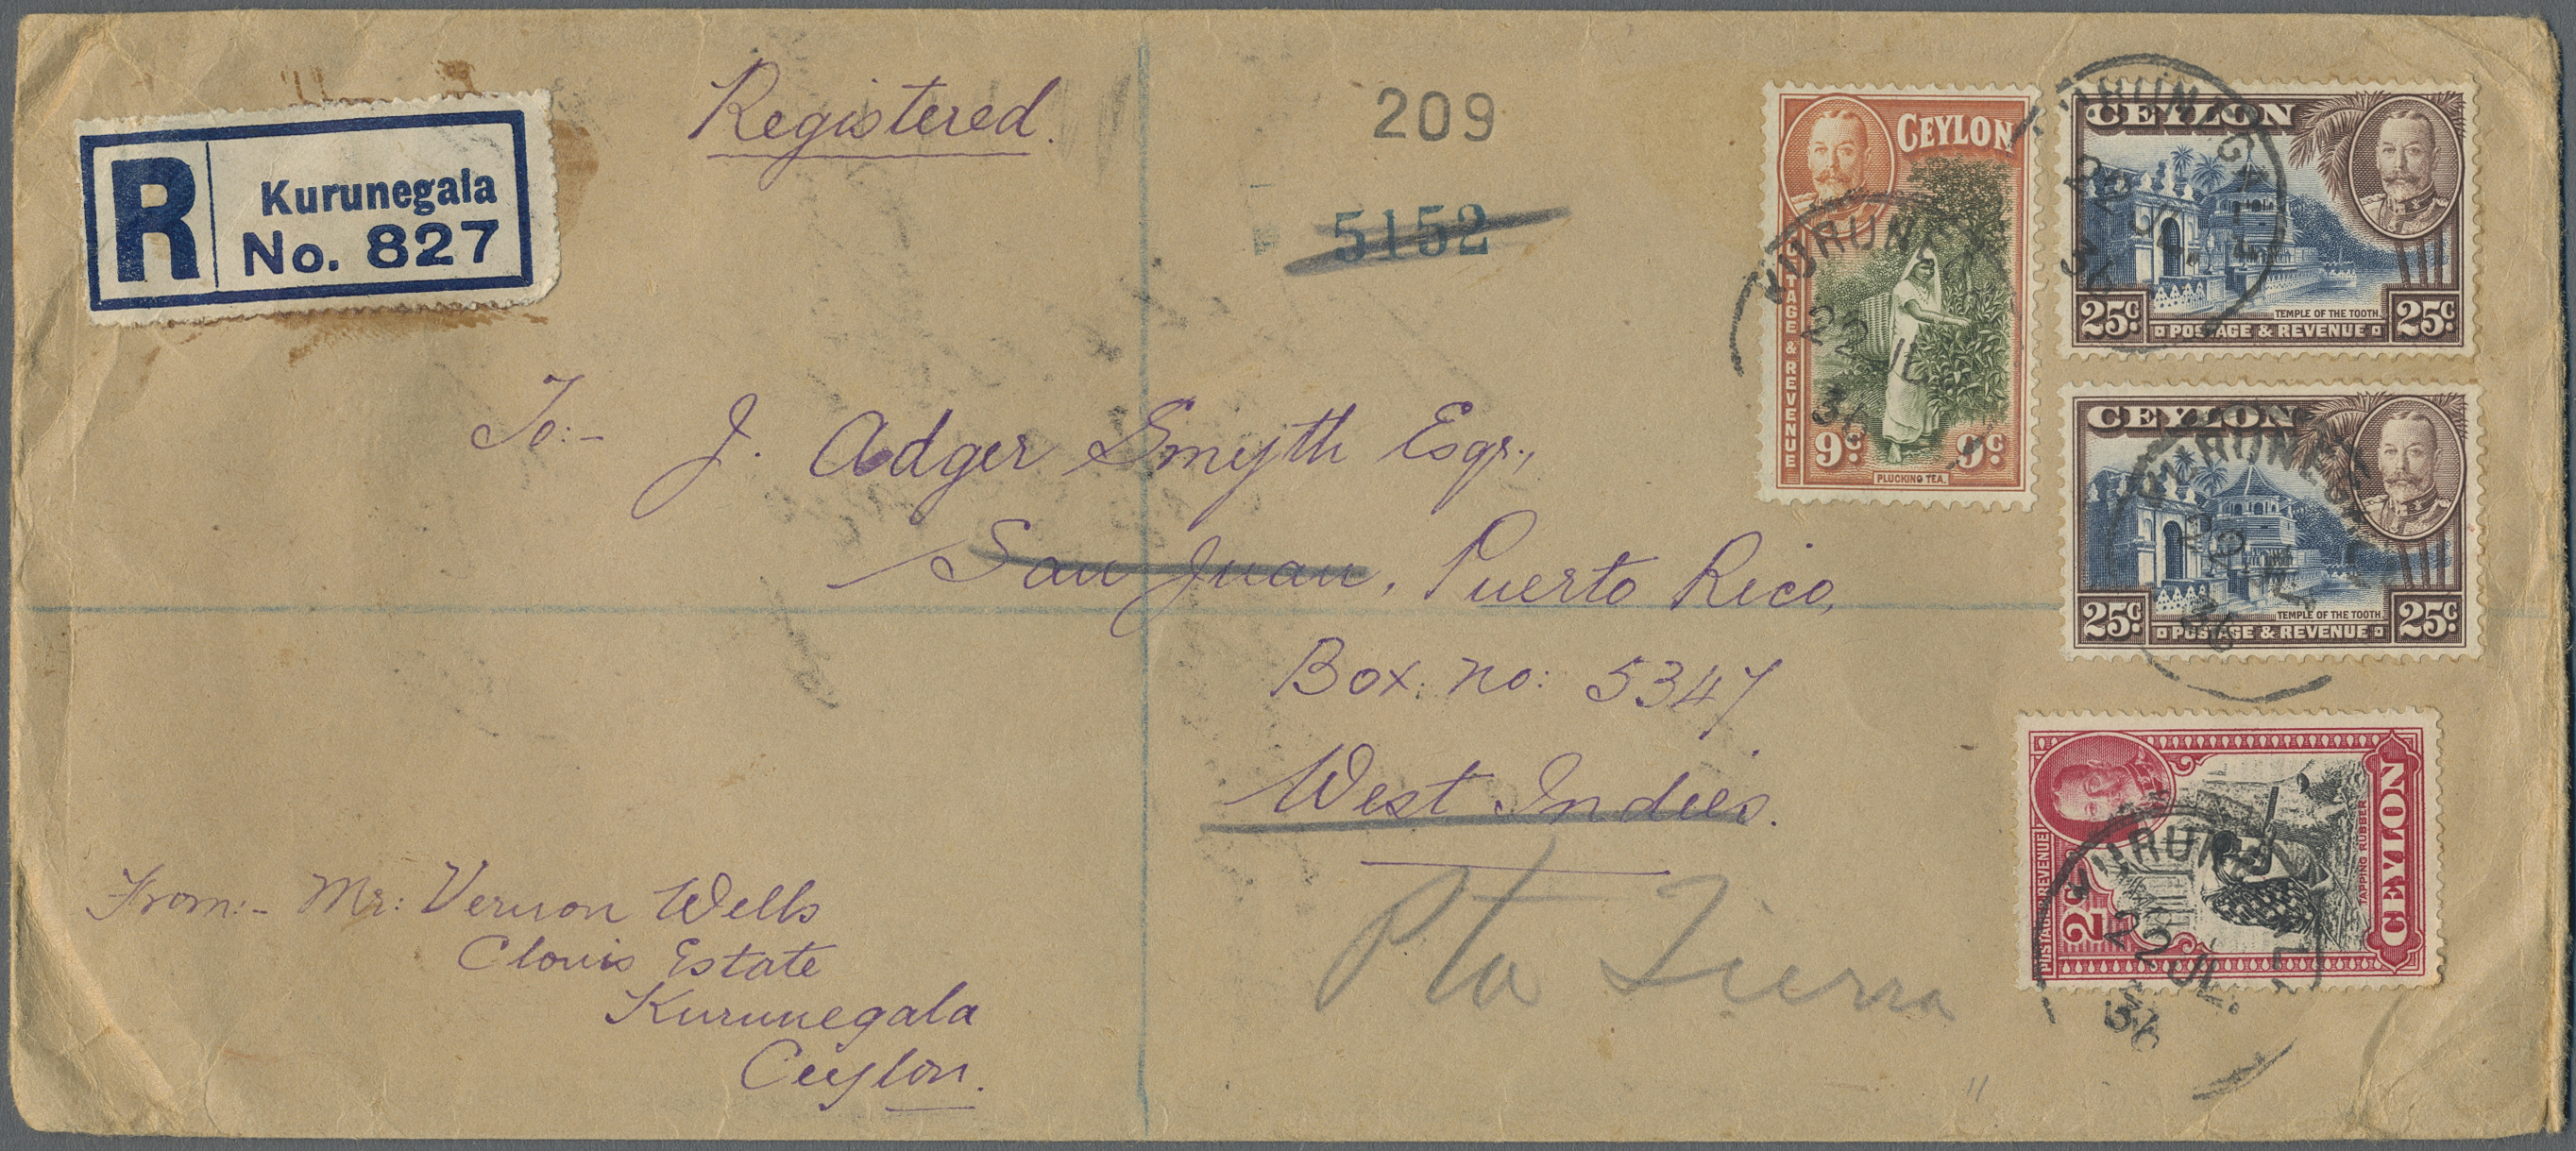 Registered.
209
5152
R
Kurunegala
No. 827
To:- J. Adger Smyth Esqr.,
San Juan, Puerto Rico,
Box. no: 5347
West Indies.
Pta Tierra
From:- Mr: Vernon Wells
Clovis Estate
Kurunegala
Ceylon.
CEYLON
POSTAGE & REVENUE
9c. 9c.
PLUCKING TEA.
KURUNE
22 JL
36
CEYLON
TEMPLE OF THE TOOTH
25c. POSTAGE & REVENUE 25c.
22 JL
36
CEYLON
TEMPLE OF THE TOOTH
25c. POSTAGE & REVENUE 25c.
36
CEYLON
TAPPING RUBBER
POSTAGE & REVENUE
2c.
KURUNE
22 JL.
36